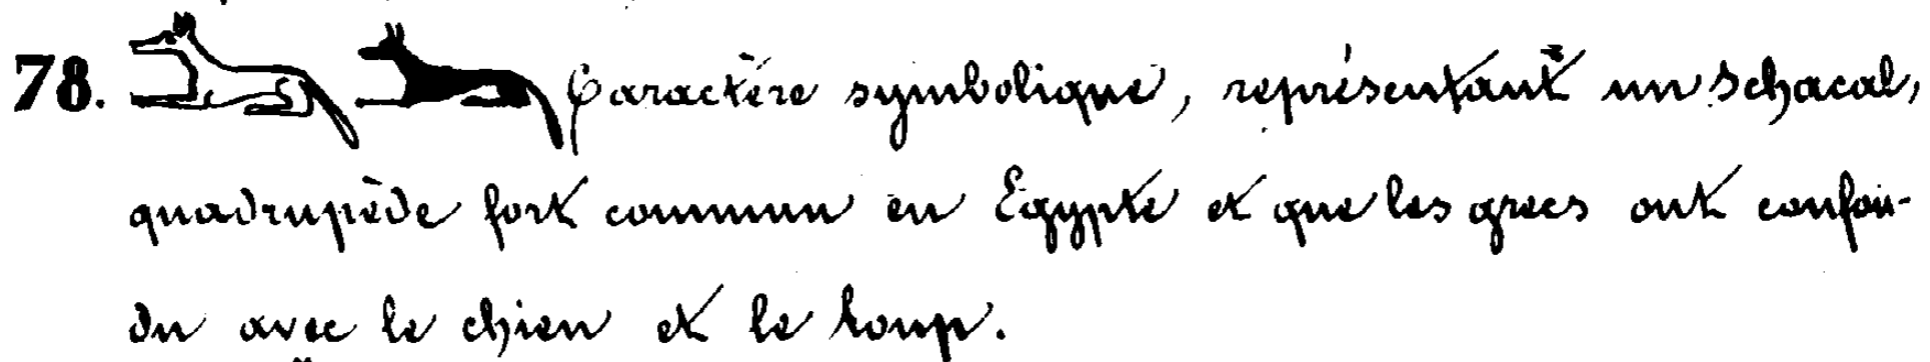 78. Caractère symbolique, représentant un schacal,
quadrupède fort commun en Egypte et que les grecs ont confon-
du avec le chien et le loup.